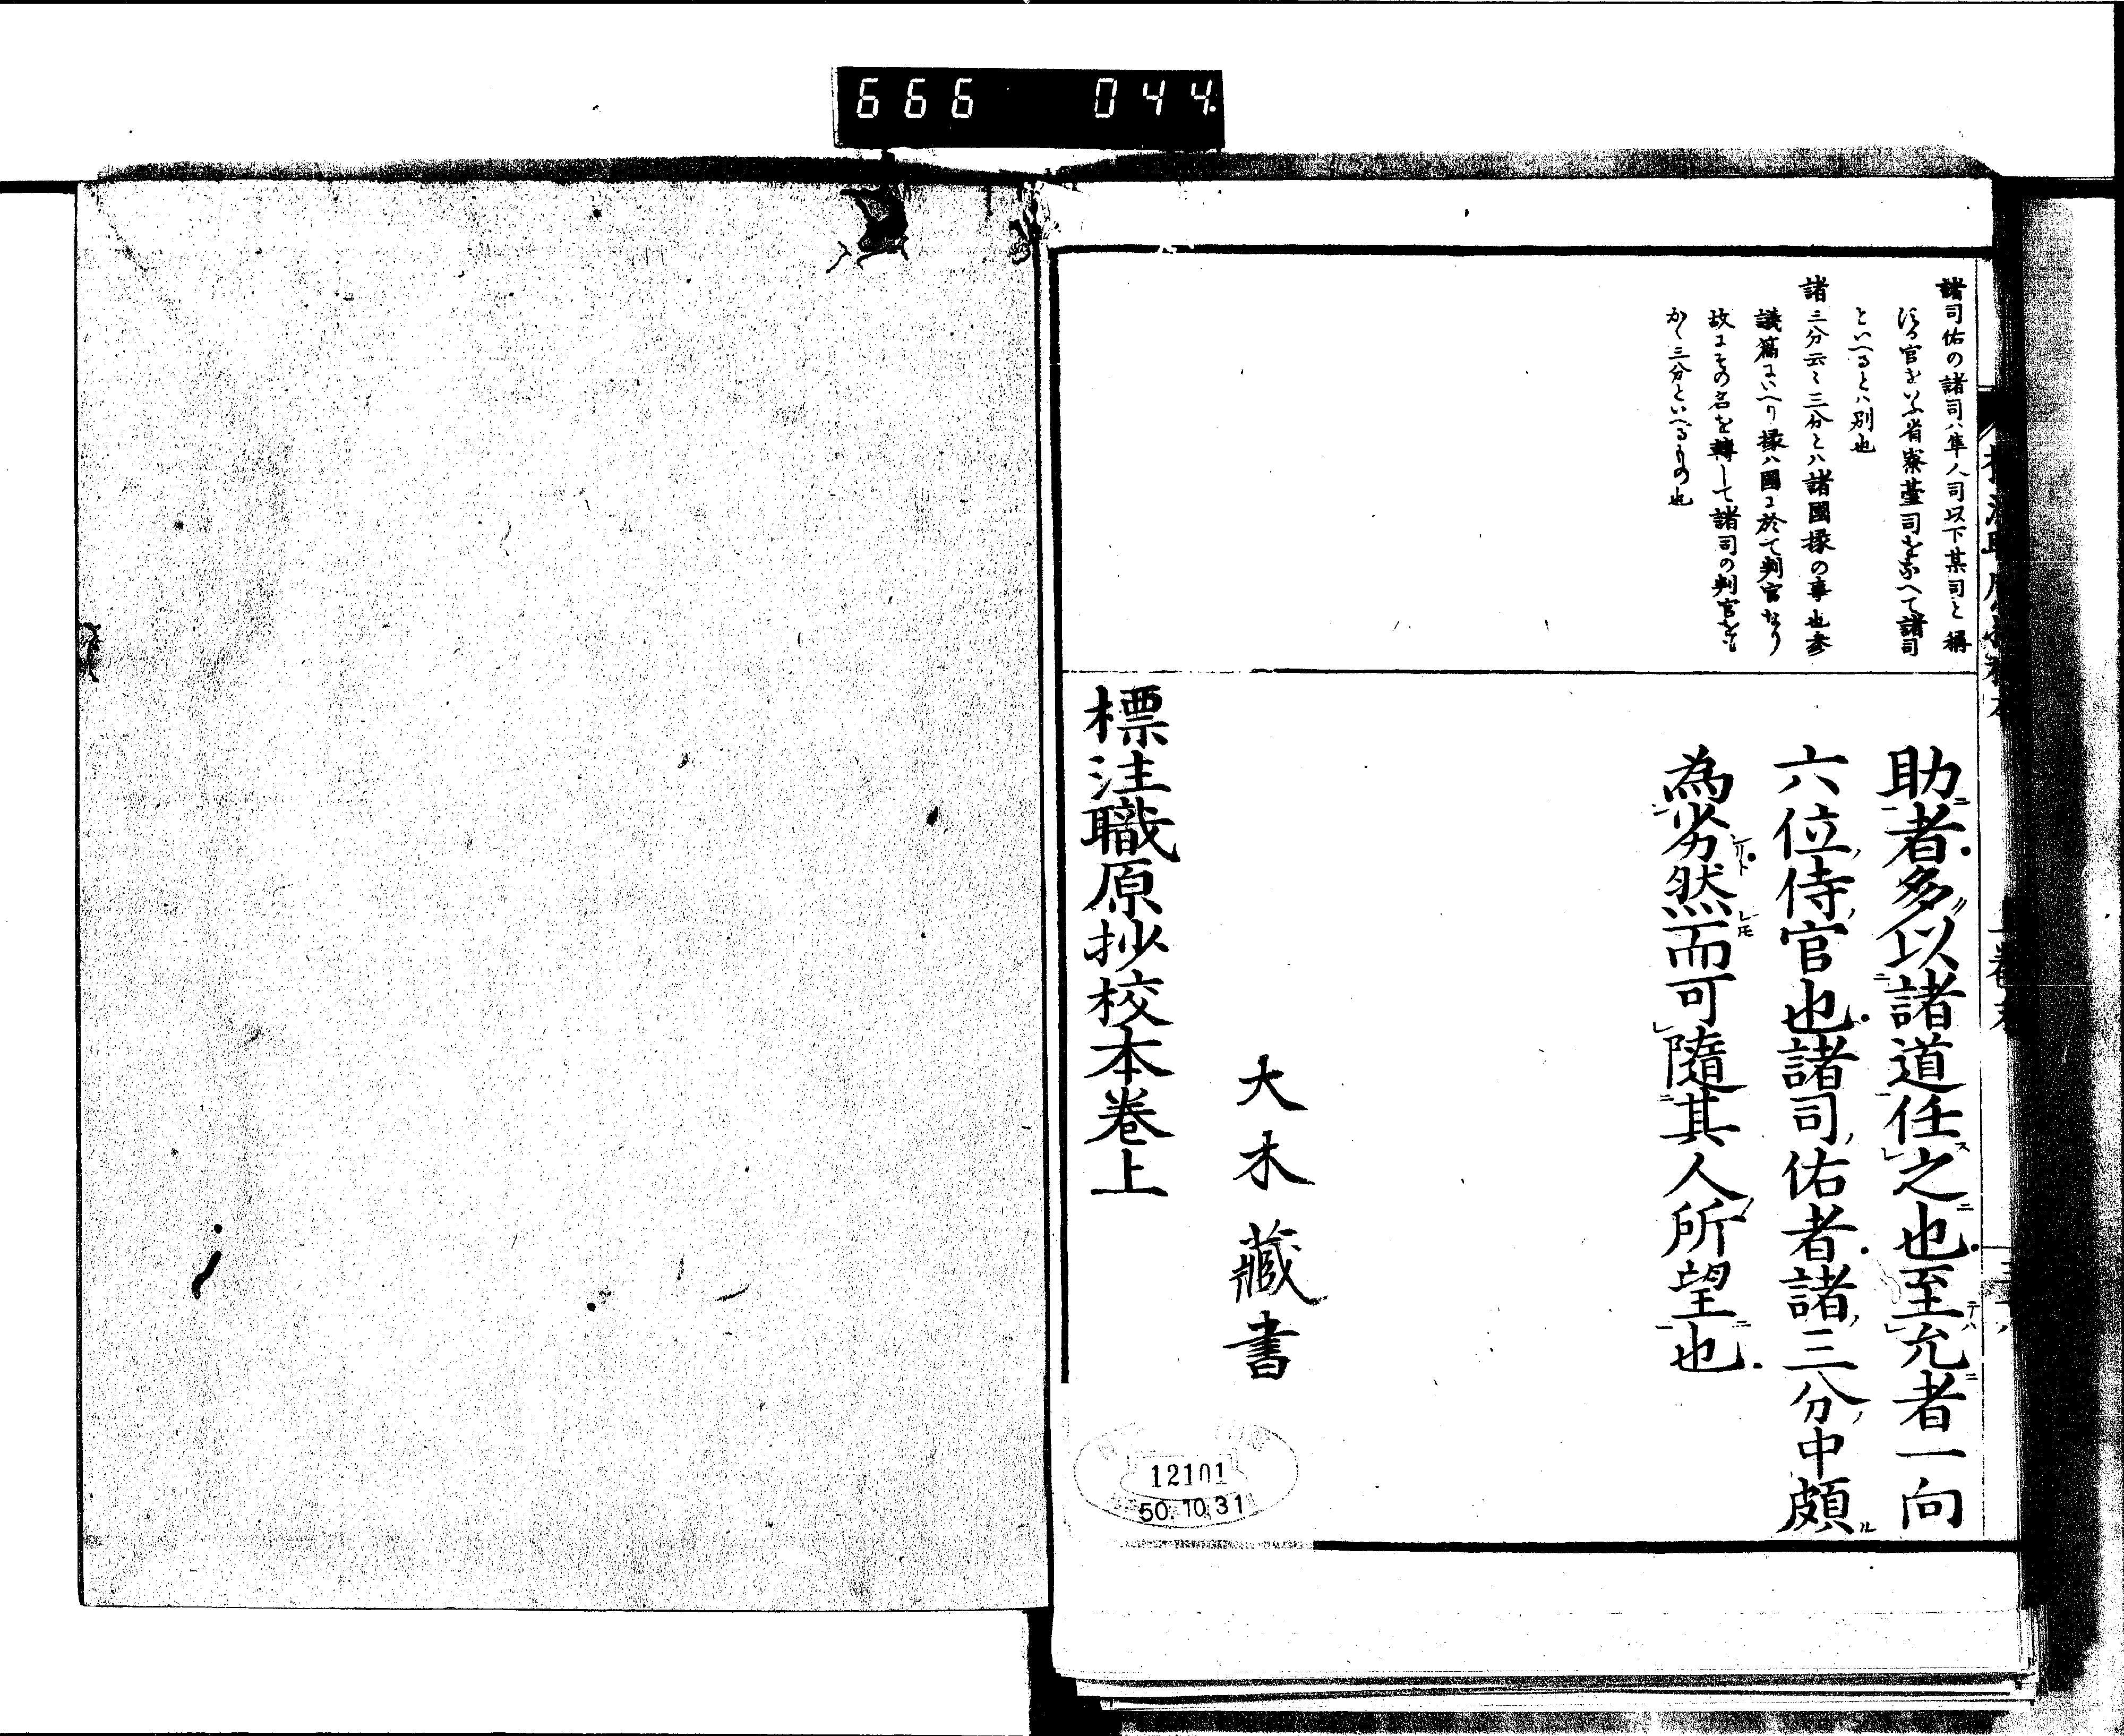 666 044
諸司佑の諸司ハ隼人司以下某司と稱
する官をいふ省寮臺司を並へて諸司
といへるとハ別也
諸三分云々三分とハ諸國掾の事也參
議篇にいへり掾ハ國に於て判官なり
故にその名を轉して諸司の判官をも
かく三分といへるもの也
助者多以諸道任之也至允者一向
六位侍官也諸司佑者諸三分中頗
為劣然而可隨其人所望也
大木藏書
標注職原抄校本卷上
12101
50.10.31